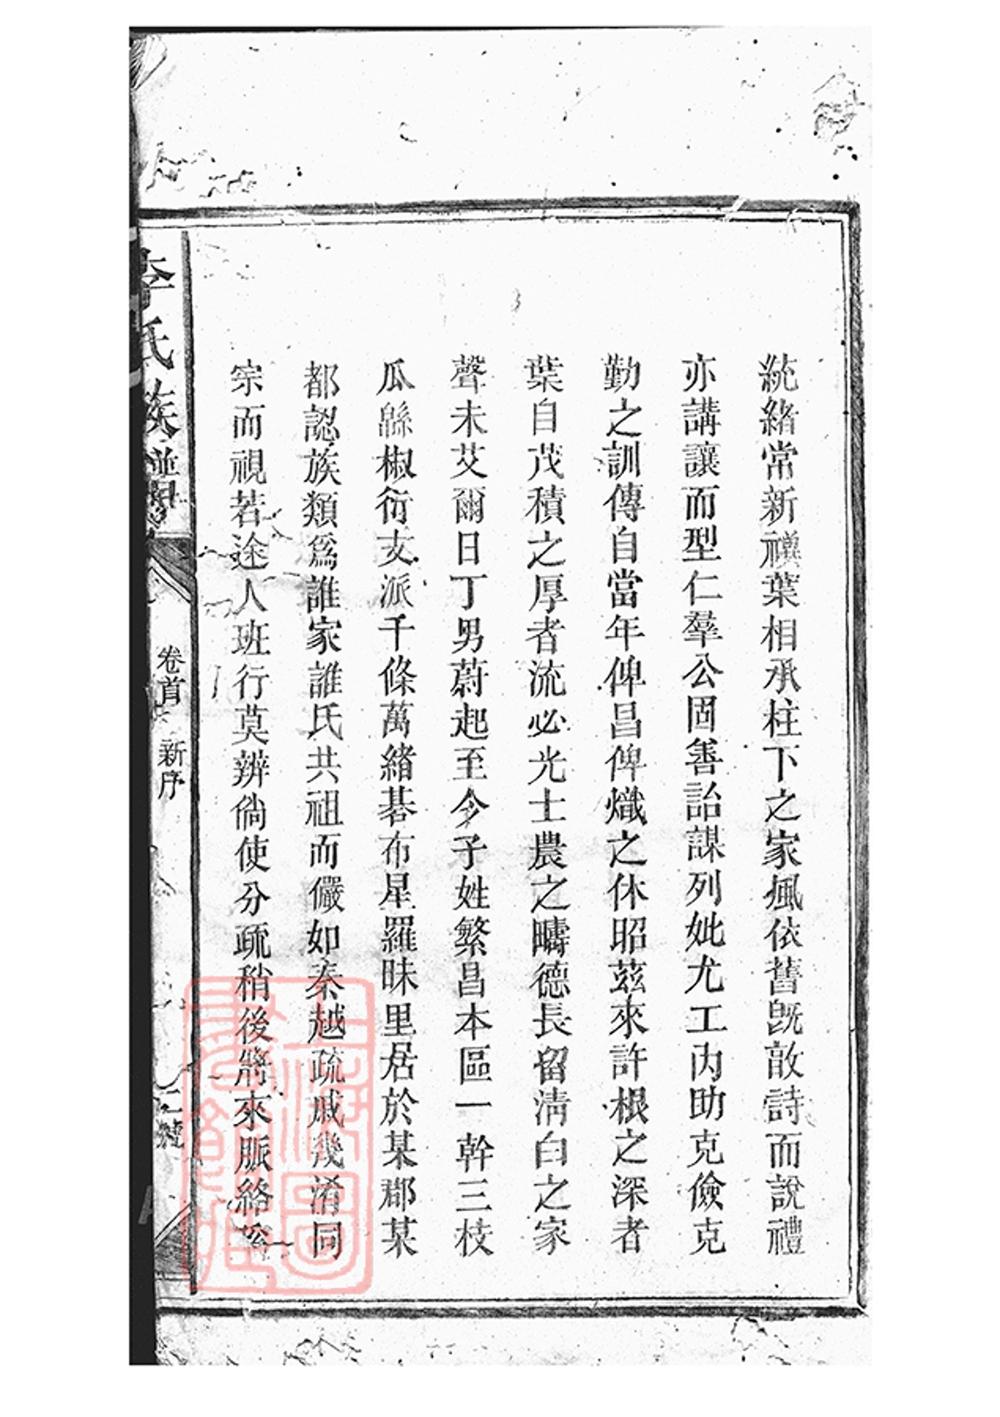 統緒常新禩葉相承柱下之家風依舊旣敨詩而說禮
亦講讓而型仁羣公固善詒謀列妣尤工內助克儉克
勤之訓傳自當年俾昌俾熾之休昭茲來許根之深者
葉自茂積之厚者流必光士農之疇德長留淸白之家
聲未艾爾日丁男蔚起至今子姓繁昌本區一幹三枝
瓜緜椒衍支派千條萬緒碁布星羅昧里居於某郡某
都認族類爲誰家誰氏共祖而儼如秦越疏戚幾淆同
宗而視若途人班行莫辨倘使分疏稍後將來脈絡
李氏族譜
卷首 新序
二號
上海圖書館藏